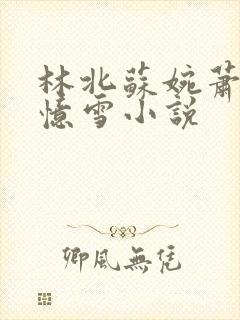 林北蘇婉蕭
憶雪小說
卿風無凭